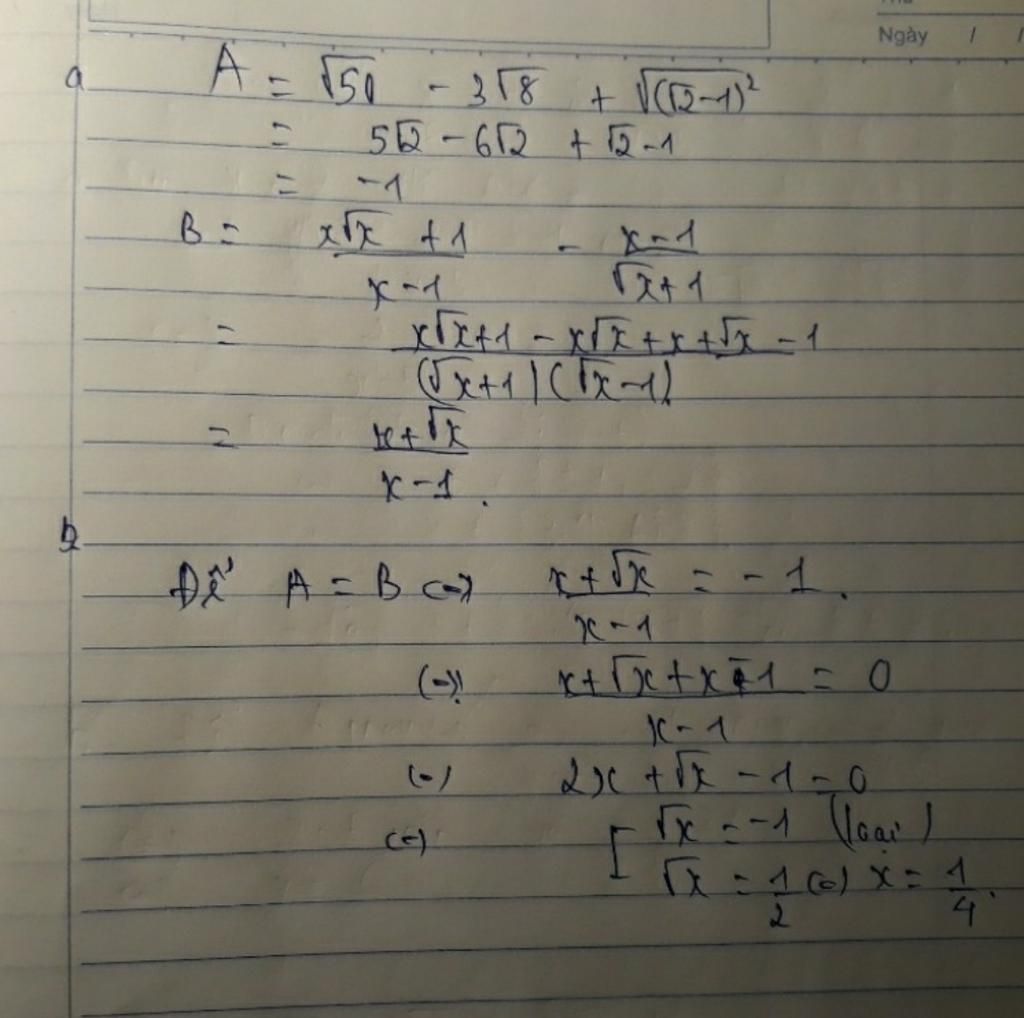 Ngày / /
a A = √50 - 3√8 + √((√2-1)²)
= 5√2 - 6√2 + √2 - 1
= -1
B = (x√x + 1)/(x - 1) - (x - 1)/(√x + 1)
= (x√x + 1 - x√x + x + √x - 1)/((√x + 1)(√x - 1))
= (x + √x)/(x - 1).
b
Để A = B (=) (x + √x)/(x - 1) = -1.
(=) (x + √x + x - 1)/(x - 1) = 0
(=) 2x + √x - 1 = 0
(=) [ √x = -1 (loại)
√x = 1/2 (=) x = 1/4.